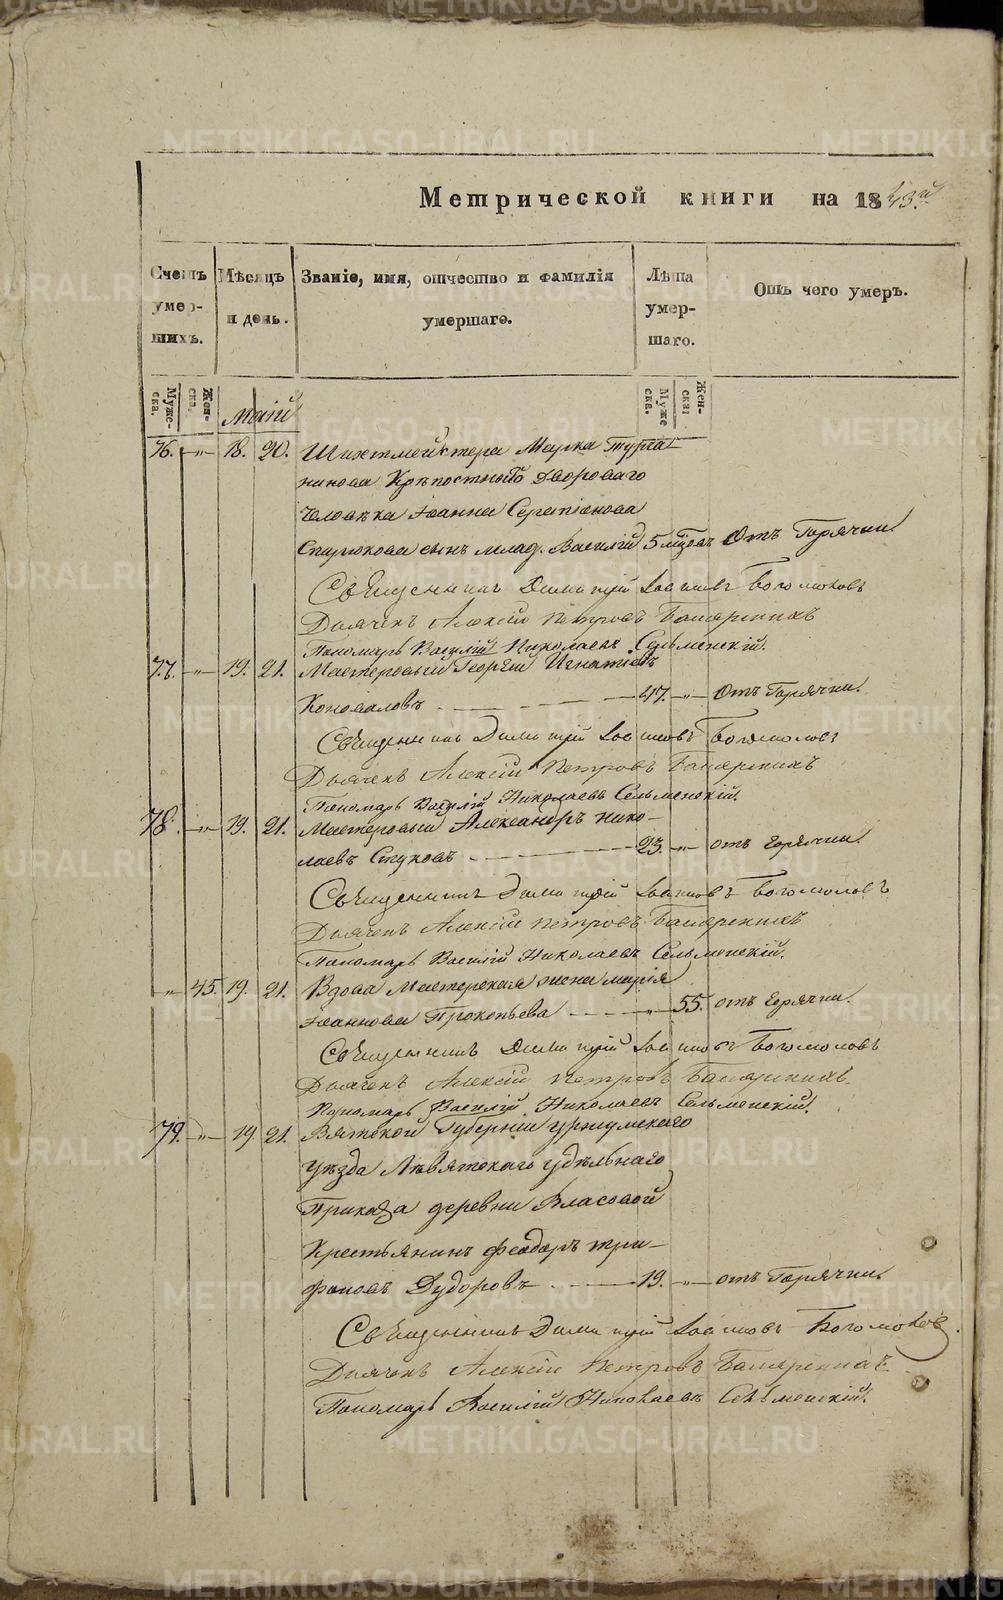 Метрической книги на 1843й
Счетъ умер- шихъ.
Мѣсяцъ и день.
Званіе, имя, отчество и фамилія умершаго.
Лѣта умер- шаго.
Отъ чего умеръ.
Муже- ска.
Жен- ска.
Муже ска.
Жен- ска.
Маій
76. „ 18. 20. Шихтмейстера Марка Турча
нинова Крѣпостнаго двороваго
человѣка Іоанна
сынъ млад. Василій 5 мѣсяц. Отъ Горячки.
Священникъ Димитрій Іоанновъ Богомоловъ
Дьячекъ Алексій Петровъ
Пономарь Василій Николаевъ Сельменскій.
77. „ 19. 21. Мастеровый Георгій Игнатіевъ
Коноваловъ 47. „ Отъ Горячки.
Священникъ Димитрій Іоанновъ Богомоловъ
Дьячекъ Алексій Петровъ
Пономарь Василій Николаевъ Сельменскій.
78. „ 19. 21. Мастеровый Александръ Нико-
лаевъ Стуковъ 23. „ отъ горячки.
Священникъ Димитрій Іоанновъ Богомоловъ
Дьячекъ Алексій Петровъ
Пономарь Василій Николаевъ Сельменскій.
„ 45. 19. 21. Вдова Мастерская жена Марія
Іоаннова Прокопьева „ 55. отъ горячки.
Священникъ Димитрій Іоанновъ Богомоловъ
Дьячекъ Алексій Петровъ
Пономарь Василій Николаевъ Сельменскій.
79. „ 19 21. Вятской Губерніи Уржумскаго
уѣзда удѣльнаго
Приказа деревни Власовой
Крестьянинъ Феодоръ Три-
фоновъ Дудоровъ 19. „ отъ Горячки.
Священникъ Димитрій Іоанновъ Богомоловъ.
Дьячекъ Алексій Петровъ
Пономарь Василій Николаевъ Сельменскій.
METRIKI.GASO-URAL.RU